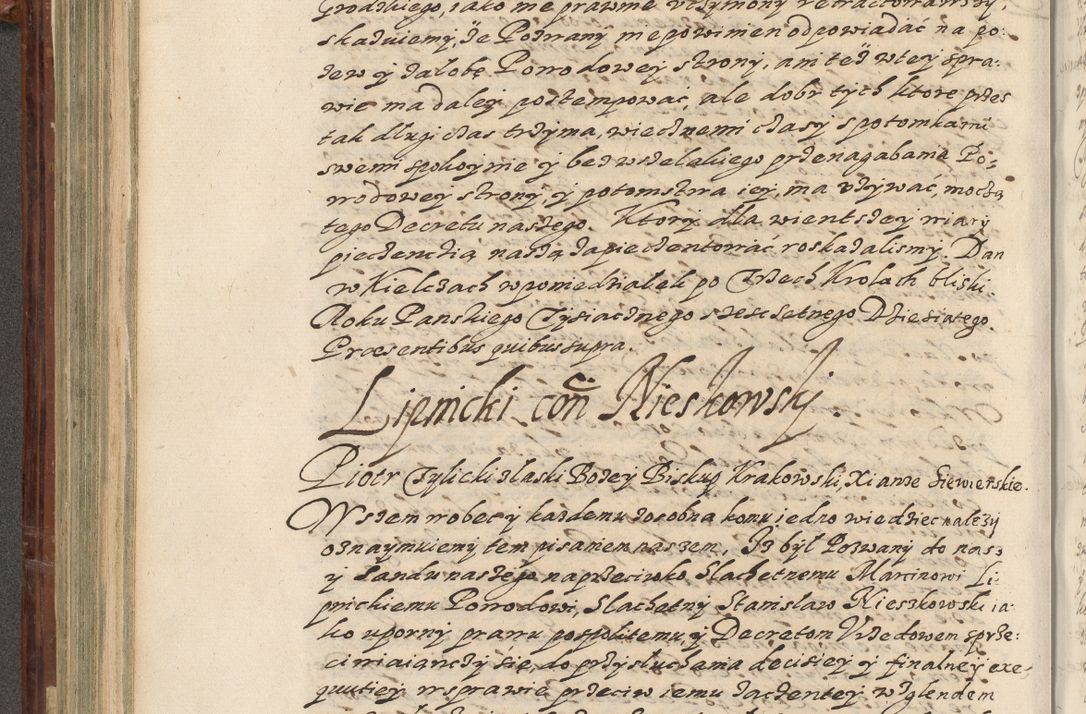 Grodzkiego, iako nie prawnie uczyniony retractowawszy,
skazuiemy, że Pozwany, nie powinien odpowiadać na po-
zew y żalobę Powodowey strony, ani też w tey spra-
wie ma daley postempować, ale dobr tych ktore przes
tak długi czas trzyma, wiecznemi czasy s potomkami
swemi spokoynie y bez wszelakiego przenagabania Po-
wodowey strony, y potomstwa iey, ma używać, moczą
tego Decretu naszego. Ktory dla wientszey wiary
pieczenczią naszą zapieczentować roskazalismy. Dan
w Kielczach w poniedziałek po Trzech Krolach bliski
Roku Panskiego Tysiacznego szescsetnego Dziesiątego.
Præsentibus quibus supra.
Lipnicki con Nieskowskj.
Piotr Tylicki z łaski Bożey Biskup Krakowski, Xianże Siewierskie.
Wszem wobec y każdemu zosobna komu iedno wiedziec należy
oznaymuiemy tem pisaniem naszem, Iż był Pozwany do nas
y Sandu naszego naprzeciwko Slachetnemu Marcinowi Li-
pnickiemu Powodowi, Slachetny Stanisław Nieszkowski ia-
ko uporny prawu pospolitemu y Decretom Urzedowem sprze-
ciwiaianczy się, do przysłuchania decisiey y finalney exe-
quutiey w sprawie przeciw iemu zaczentey w zglendem